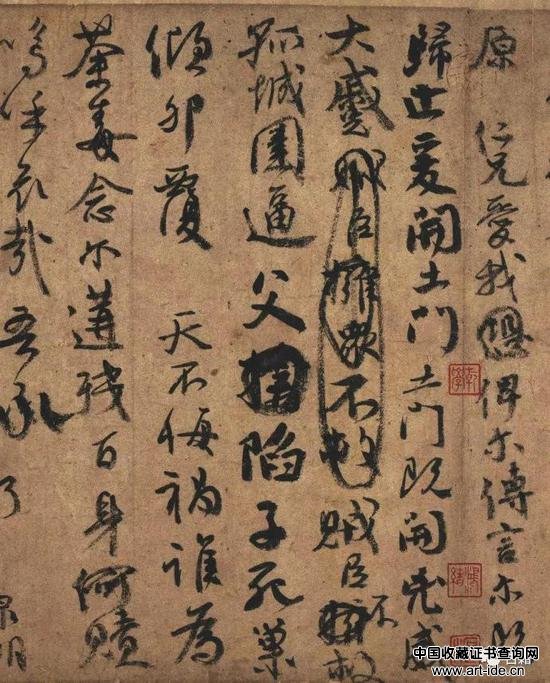 原仁兄愛我俾尔傳言尔既
歸止爰開土門土門既開兇威
大蹙賊臣擁眾不救賊臣不救
孤城圍逼父陷子死巢
傾卵覆天不悔禍誰為
荼毒念尔遘殘百身何贖
嗚呼哀哉吾承
中国收藏证书查询网
www.art-ide.cn